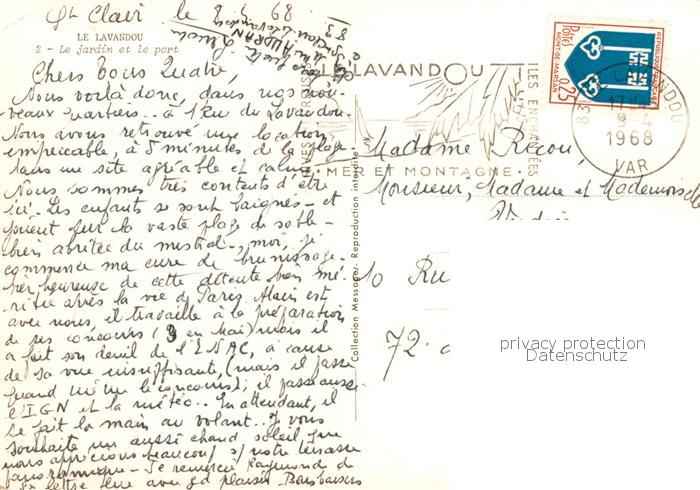 St Clair le 8.4.68
LE LAVANDOU
2 - Le jardin et le port
Chers tous Quatre,
Nous voilà donc, dans nos nou-
veaux quartiers.. à 1 km du Lavandou.
Nous avons retrouvé une location
impeccable, à 5 minutes de la plage
dans un site agréable et calme.
Nous sommes très contents d'être
ici. Les enfants se sont baignés - et
jouent sur la vaste plage de sable -
bien abritée du mistral -, moi, je
commence ma cure de brunissage -
bien heureuse de cette détente bien mé-
ritée après la vie de Paris. Alain est
avec nous, il travaille à la préparation
de ses concours (3 en Mai) mais il
a fait son deuil de l'ENAC, à cause
de sa vue insuffisante, (mais il passe
quand même le concours); il passe aussi
l'IGN et la météo.. En attendant, il
se fait la main au volant.. Je vous
souhaite un aussi chaud soleil que
nous apprécions beaucoup s/ notre terrasse
panoramique - Je remercie Raymond de
sa lettre lue avec gd plaisir Bons baisers
83
LE LAVANDOU
ILES
MER ET MONTAGNE
LAVANDOU
17H
8-4
1968
VAR
83
POSTES
0,25
REPUBLIQUE FRANCAISE
MONT-DE-MARSAN
Collection Messager. Reproduction interdite.
Madame Recou,
Monsieur, Madame et Mademoiselle
10 Ru
72.
privacy protection
Datenschutz